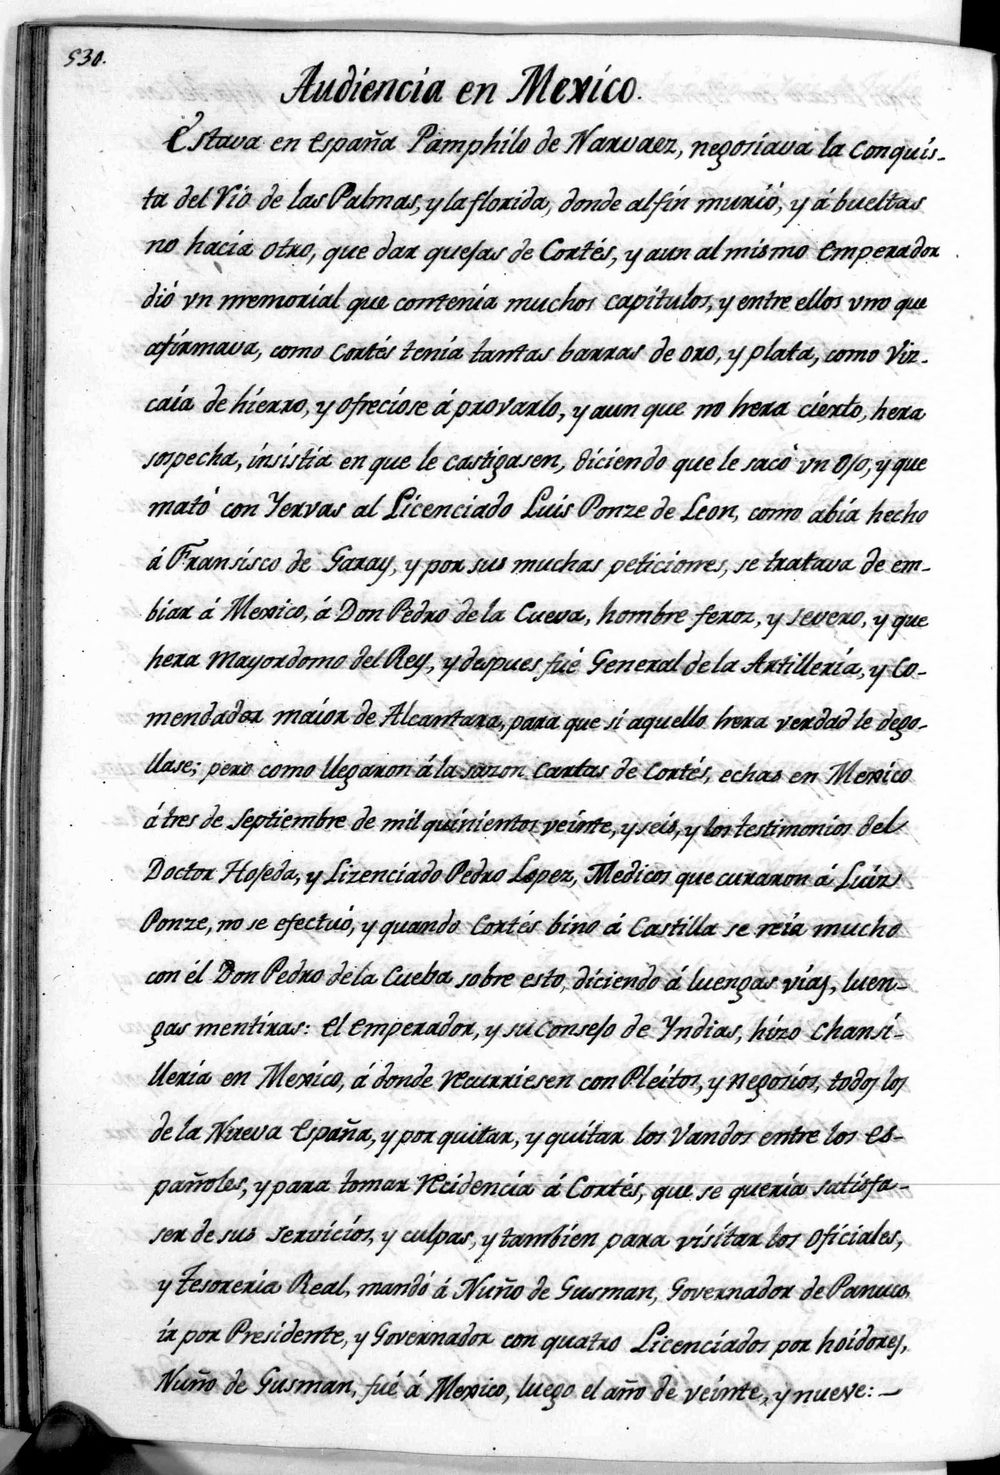 530.
Audiencia en Mexico.
Estava en España Pamphilo de Narvaez, negosiava la conquis-
ta del Rio de las Palmas, y la florida, donde al fin murió, y á bueltas
no hacia otro, que dar quejas de Cortés, y aun al mismo Emperador
dió vn memorial que contenia muchos capitulos, y entre ellos vno que
afirmava, como Cortés tenia tantas barras de oro, y plata, como Viz-
caia de hierro, y ofreciose á provarlo, y aun que no hera cierto, hera
sospecha, insistia en que le castigasen, diciendo que le sacó vn ojo, y que
mató con Yervas al Licenciado Luis Ponze de Leon, como abia hecho
á Fransisco de Garay, y por sus muchas peticiones, se tratava de em-
biar á Mexico, á Don Pedro de la Cueva, hombre feroz, y severo, y que
hera Mayordomo del Rey, y despues fué General de la Artilleria, y Co-
mendador maior de Alcantara, para que si aquello hera verdad le dego-
llase; pero como llegaron á la sazon cartas de Cortés, echas en Mexico
á tres de Septiembre de mil quinientos veinte, y seis, y los testimonios del
Doctor Hojeda, y Lizenciado Pedro Lopez, Medicos que curaron á Luiz
Ponze, no se efectuó, y quando Cortés bino á Castilla se reia mucho
con él Don Pedro de la Cueba sobre esto, diciendo á luengas vias, luen-
gas mentiras: El Emperador, y su Consejo de Yndias, hizo Chansi-
lleria en Mexico, á donde recurriesen con Pleitos, y negosios, todos los
de la Nueva España, y por quitar, y quitar los Vandos entre los Es-
pañoles, y para tomar recidencia á Cortés, que se queria satisfa-
ser de sus servicios, y culpas, y tambien para visitar los Oficiales,
y Tesoreria Real, mandó á Nuño de Gusman, Governador de Panuco,
ir por Presidente, y Governador con quatro Licenciados por hoidores,
Nuño de Gusman, fué á Mexico, luego el año de veinte, y nueve: —